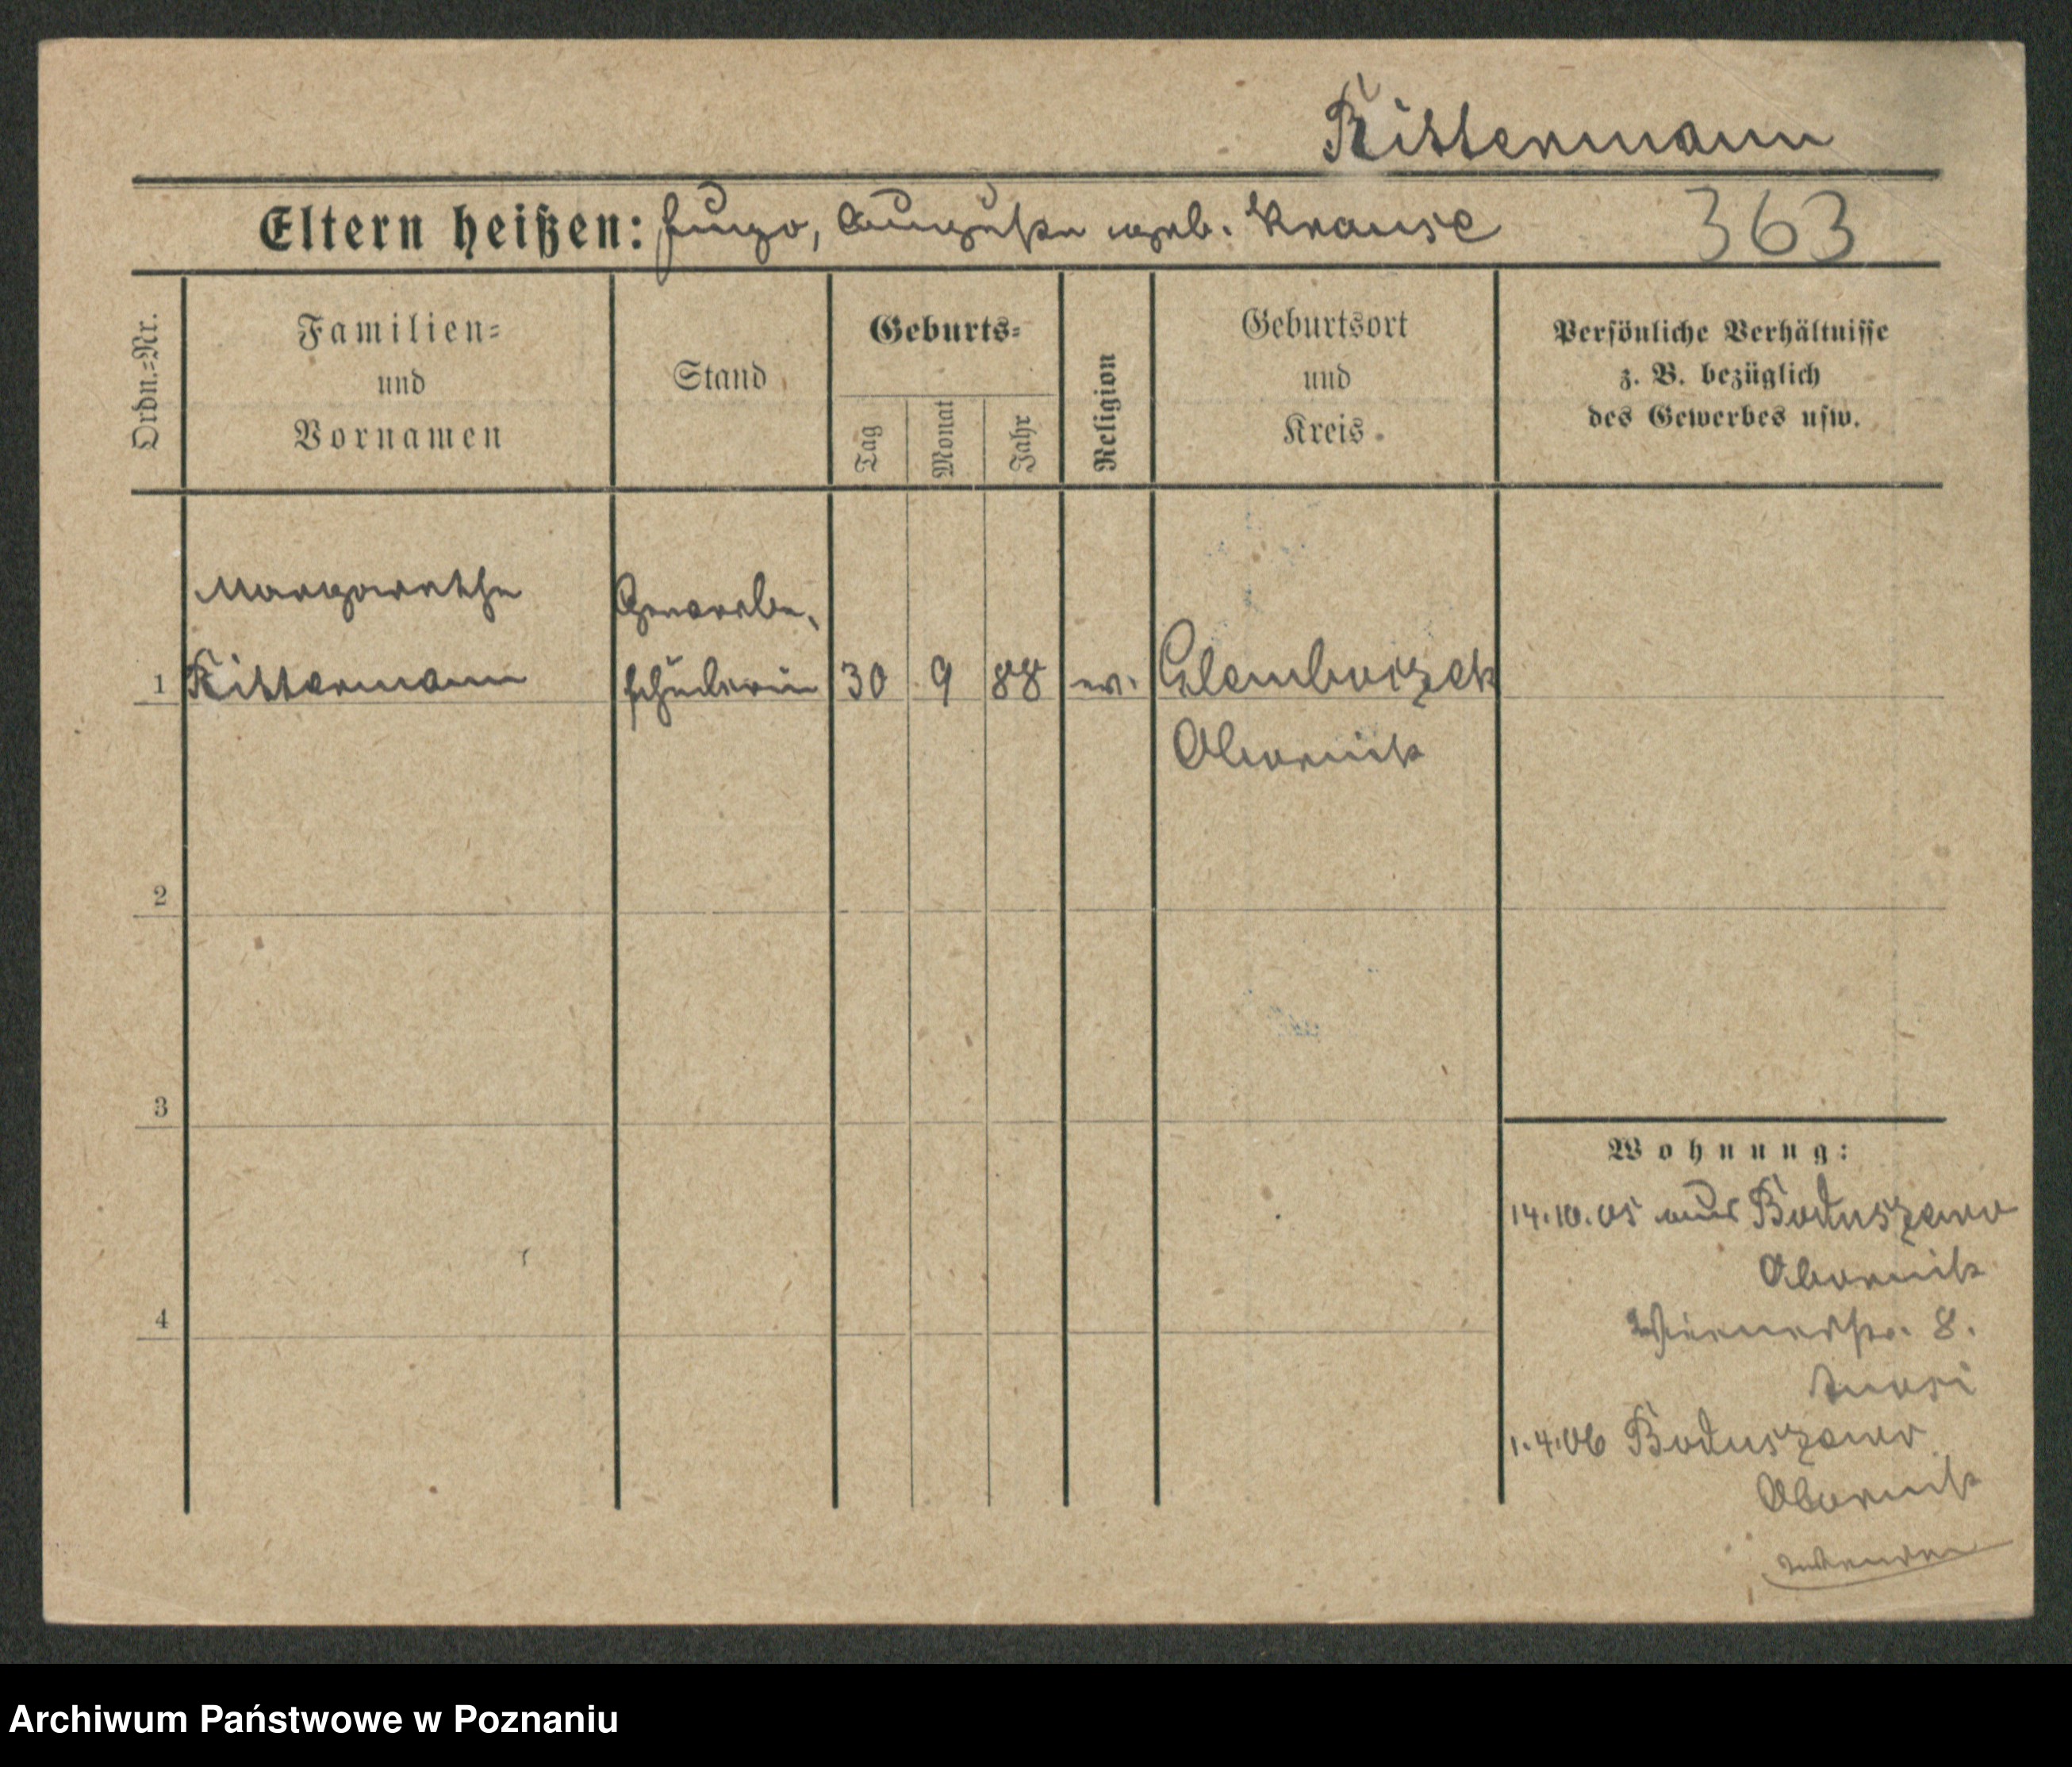 Kistermann
Eltern heißen: Hugo, Auguste geb. Krause 363
Ordn.-Nr.
Familien-
und
Vornamen
Stand
Geburts-
Tag
Monat
Jahr
Religion
Geburtsort
und
Kreis.
Persönliche Verhältnisse
z. B. bezüglich
des Gewerbes usw.
Margarethe Gewerbe-
1 Kistermann schülerin 30 9 88 ev. Glemboczek
Obornik
2
3
4
Wohnung:
14.10.05 aus Boduszewo
Obornik
Wienerstr. 8.
1.4.06 Boduszewo
Obornik
Archiwum Państwowe w Poznaniu